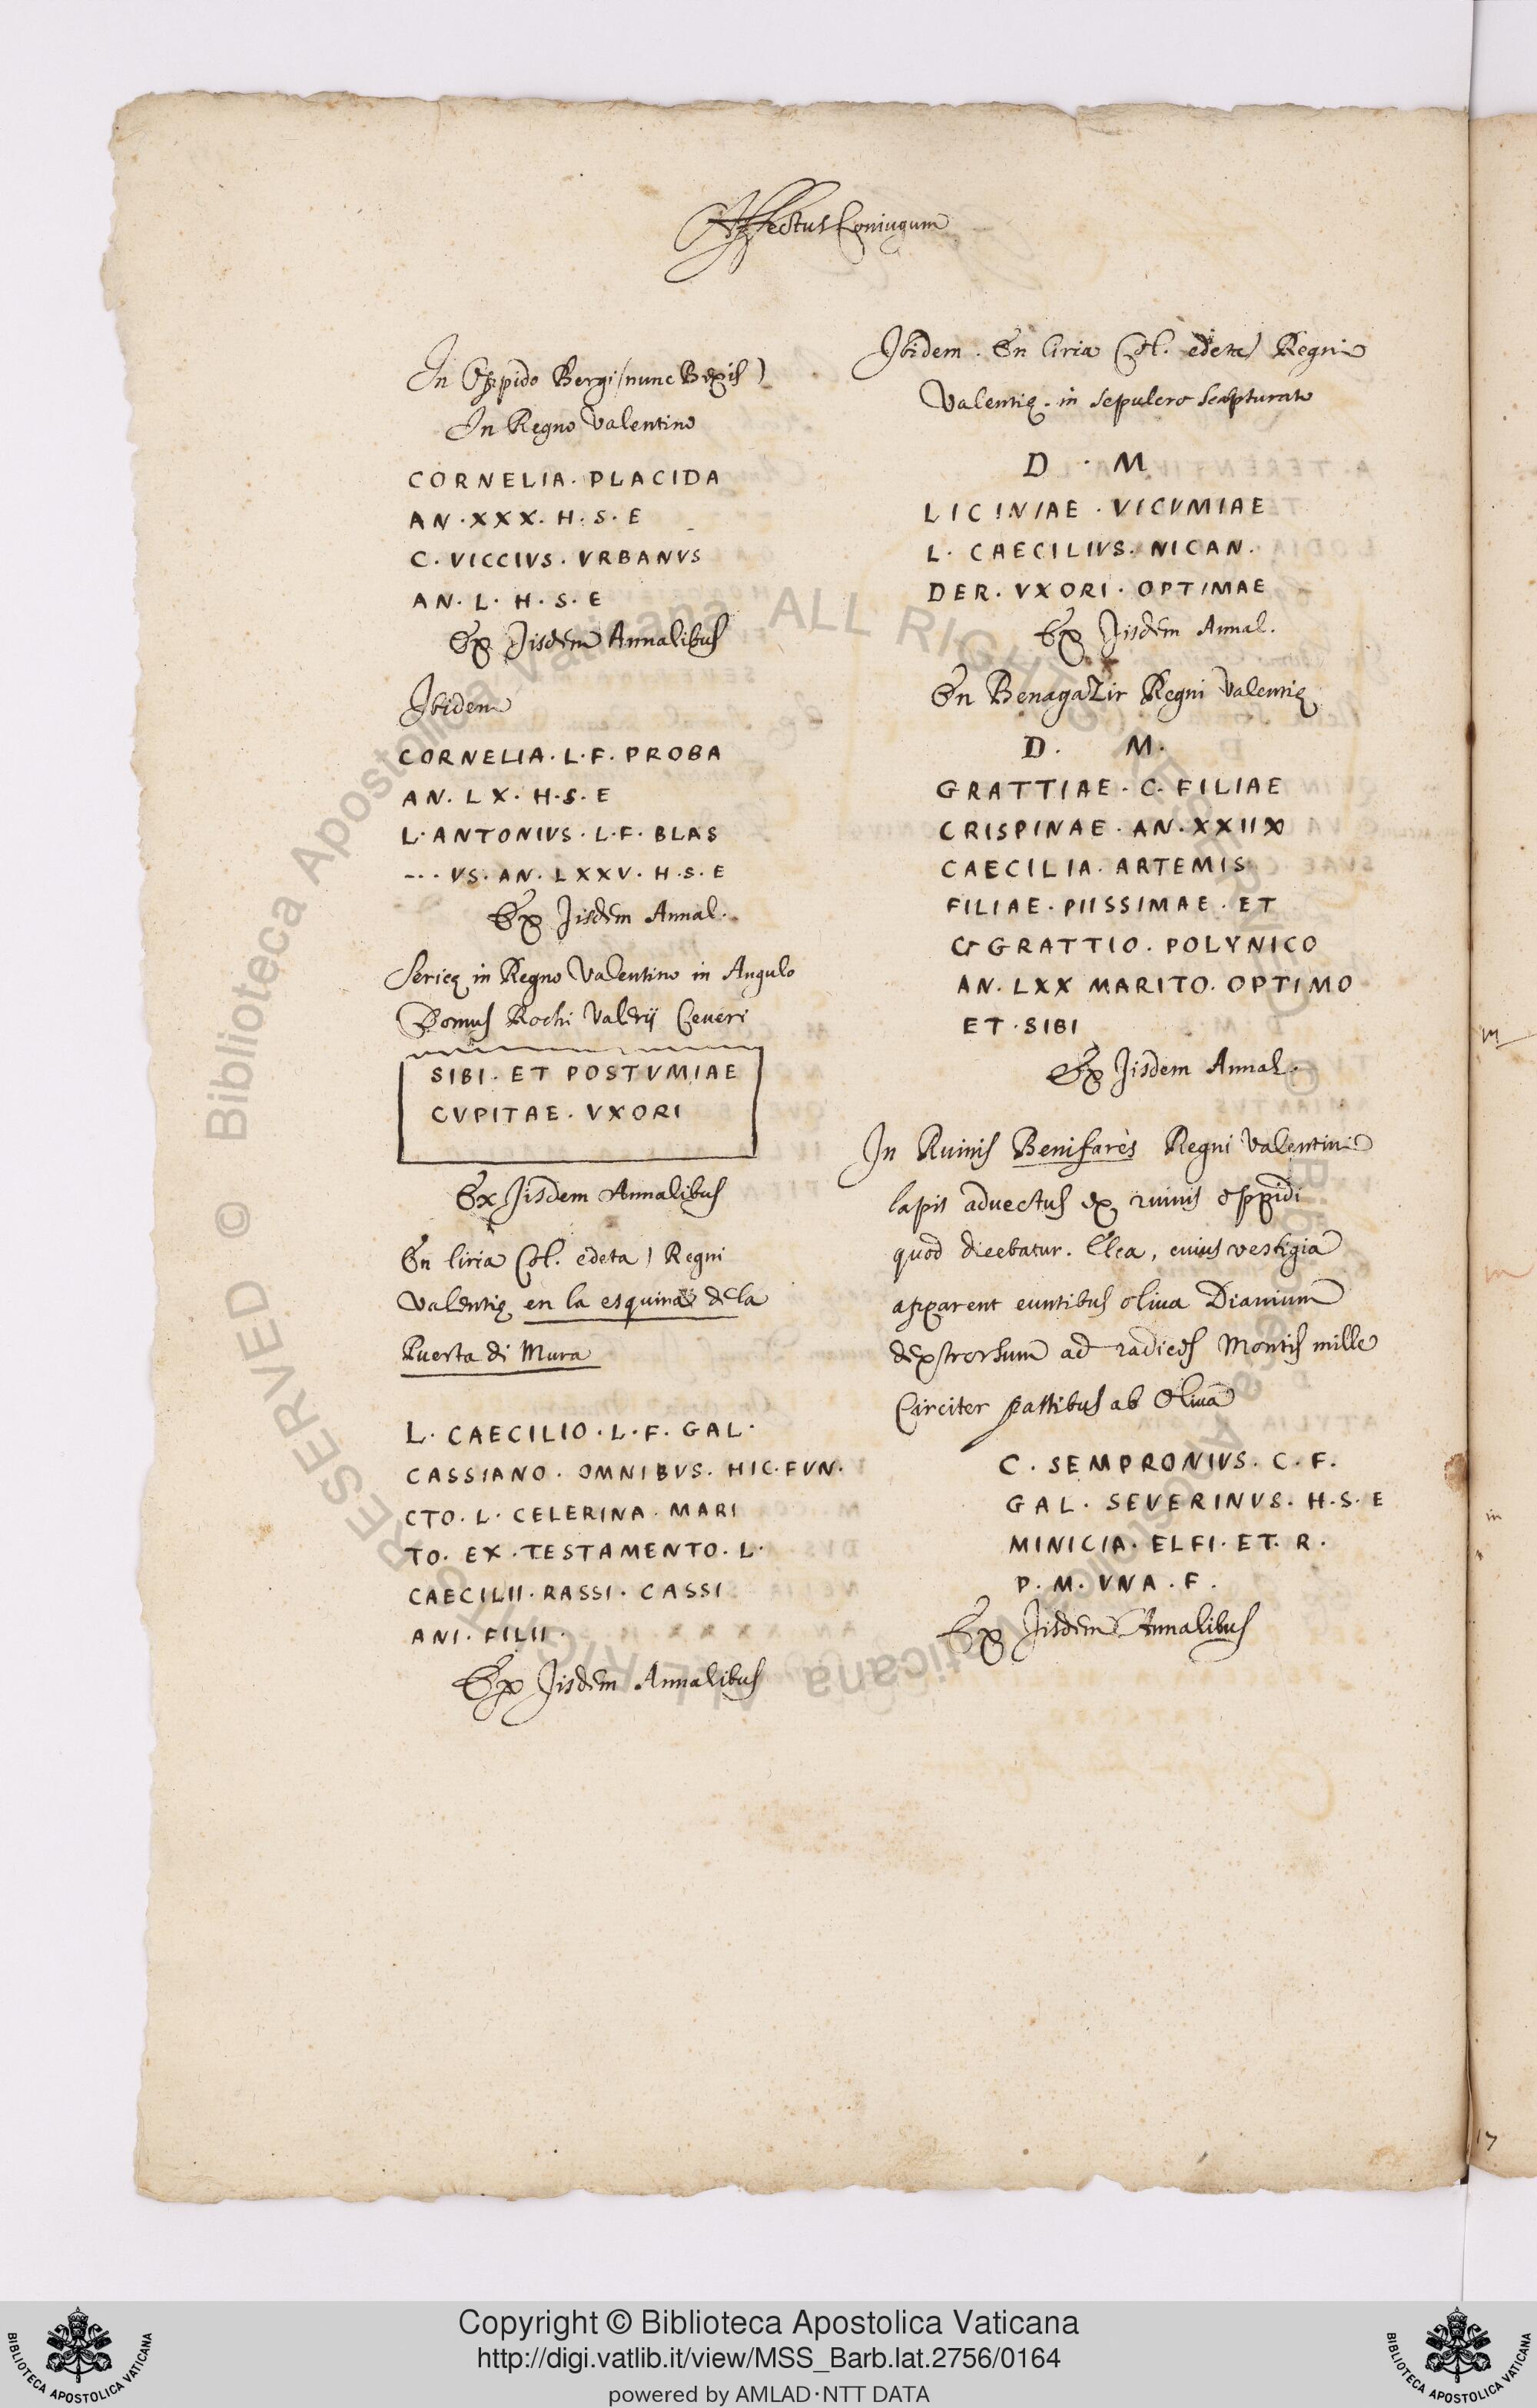 Affectus Coniugum
In Oppido Bergi (nunc Bexis)
In Regno Valentino
CORNELIA. PLACIDA
AN. XXX. H. S. E
C. VICCIVS. VRBANVS
AN. L. H. S. E
Ex Jisdem Annalibus
Jbidem
CORNELIA. L. F. PROBA
AN. LX. H. S. E
L. ANTONIVS. L. F. BLAS
--. VS. AN. LXXV. H. S. E
Ex Jisdem Annal.
Sericę in Regno Valentino in Angulo
Domus Rochi Valerij Ceueri
SIBI. ET POSTVMIAE
CVPITAE. VXORI
Ex Jisdem Annalibus
En liria (ol. edeta) Regni
Valentię en la esquina de la
Puerta di Mura
L. CAECILIO. L. F. GAL.
CASSIANO. OMNIBVS. HIC. FVN.
CTO. L. CELERINA. MARI
TO. EX. TESTAMENTO. L.
CAECILII. RASSI. CASSI
ANI. FILII.
Ex Jisdem Annalibus
Jbidem. En liria (ol. edeta) Regni
Valentię. in sepulcro scalpturato
D. M
LICINIAE. VICVMIAE
L. CAECILIVS. NICAN.
DER. VXORI. OPTIMAE
Ex Jisdem Annal.
En Benagazir Regni Valentię
D. M.
GRATTIAE. C. FILIAE
CRISPINAE. AN. XXIIX
CAECILIA. ARTEMIS
FILIAE. PIISSIMAE. ET
GRATTIO. POLYNICO
AN. LXX MARITO. OPTIMO
ET. SIBI
Ex Jisdem Annal.
In Ruinis Benifarès Regni Valentini
lapis aduectus ex ruinis oppidi
quod dicebatur. Elca, cuius vestigia
apparent euntibus oliua Dianium
dextrorsum ad radices Montis mille
Circiter passibus ab Oliua
C. SEMPRONIVS. C. F.
GAL. SEVERINVS. H. S. E
MINICIA. ELFI. ET. R.
P. M. VNA. F.
Ex Jisdem Annalibus
Copyright © Biblioteca Apostolica Vaticana
http://digi.vatlib.it/view/MSS_Barb.lat.2756/0164
powered by AMLAD·NTT DATA